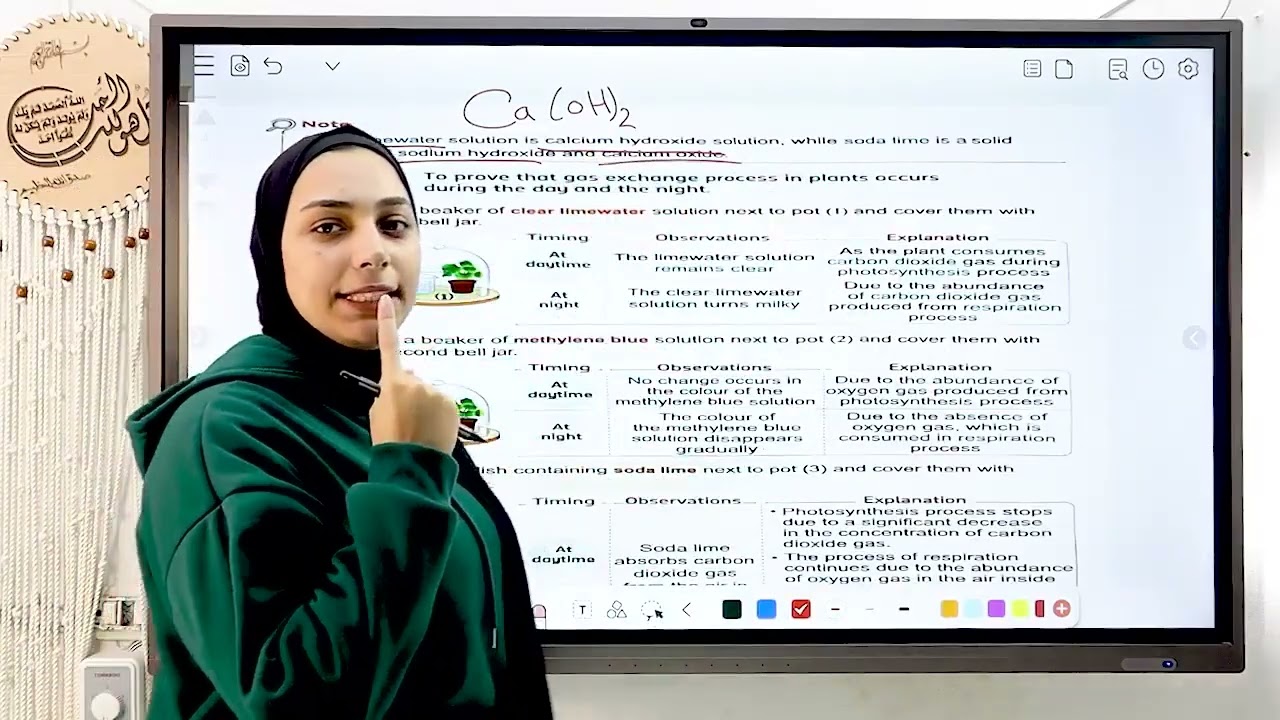 Ca(OH)2
Note
ewater solution is calcium hydroxide solution, while soda lime is a solid
sodium hydroxide and calcium oxide.
To prove that gas exchange process in plants occurs
during the day and the night.
beaker of clear limewater solution next to pot (1) and cover them with
bell jar.
Timing Observations Explanation
At daytime The limewater solution remains clear As the plant consumes carbon dioxide gas during photosynthesis process
(1)
At night The clear limewater solution turns milky Due to the abundance of carbon dioxide gas produced from respiration process
a beaker of methylene blue solution next to pot (2) and cover them with
cond bell jar.
Timing Observations Explanation
At daytime No change occurs in the colour of the methylene blue solution Due to the abundance of oxygen gas produced from photosynthesis process
At night The colour of the methylene blue solution disappears gradually Due to the absence of oxygen gas, which is consumed in respiration process
ish containing soda lime next to pot (3) and cover them with
Timing Observations Explanation
At daytime Soda lime absorbs carbon dioxide gas from the air in
• Photosynthesis process stops due to a significant decrease in the concentration of carbon dioxide gas.
• The process of respiration continues due to the abundance of oxygen gas in the air inside
T
TORNADO